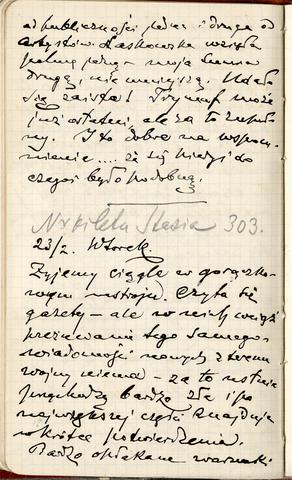 od publiczności jedna i druga od
artystów. Laskowska wzięła
jedną
drugą, nie mniejszą. Udało
się zaiste! Tryumf może
już ostatni, ale za to zupeł-
ny. I to dobre na wspom-
nienie.... że się kiedyś do
czegoś było podobną.
Nr biletu Stasia 303.
23/2. Wtorek.
Żyjemy ciągle w gorączko-
wym nastroju. Czyta się
gazety – ale w nich wciąż
tego samego –
wiadomości nowych z terenu
wojny niema – za to ustnie
przychodzą bardzo złe i po
największej części znajdują
wkrótce potwierdzenia.
Bardzo opłakane warunki